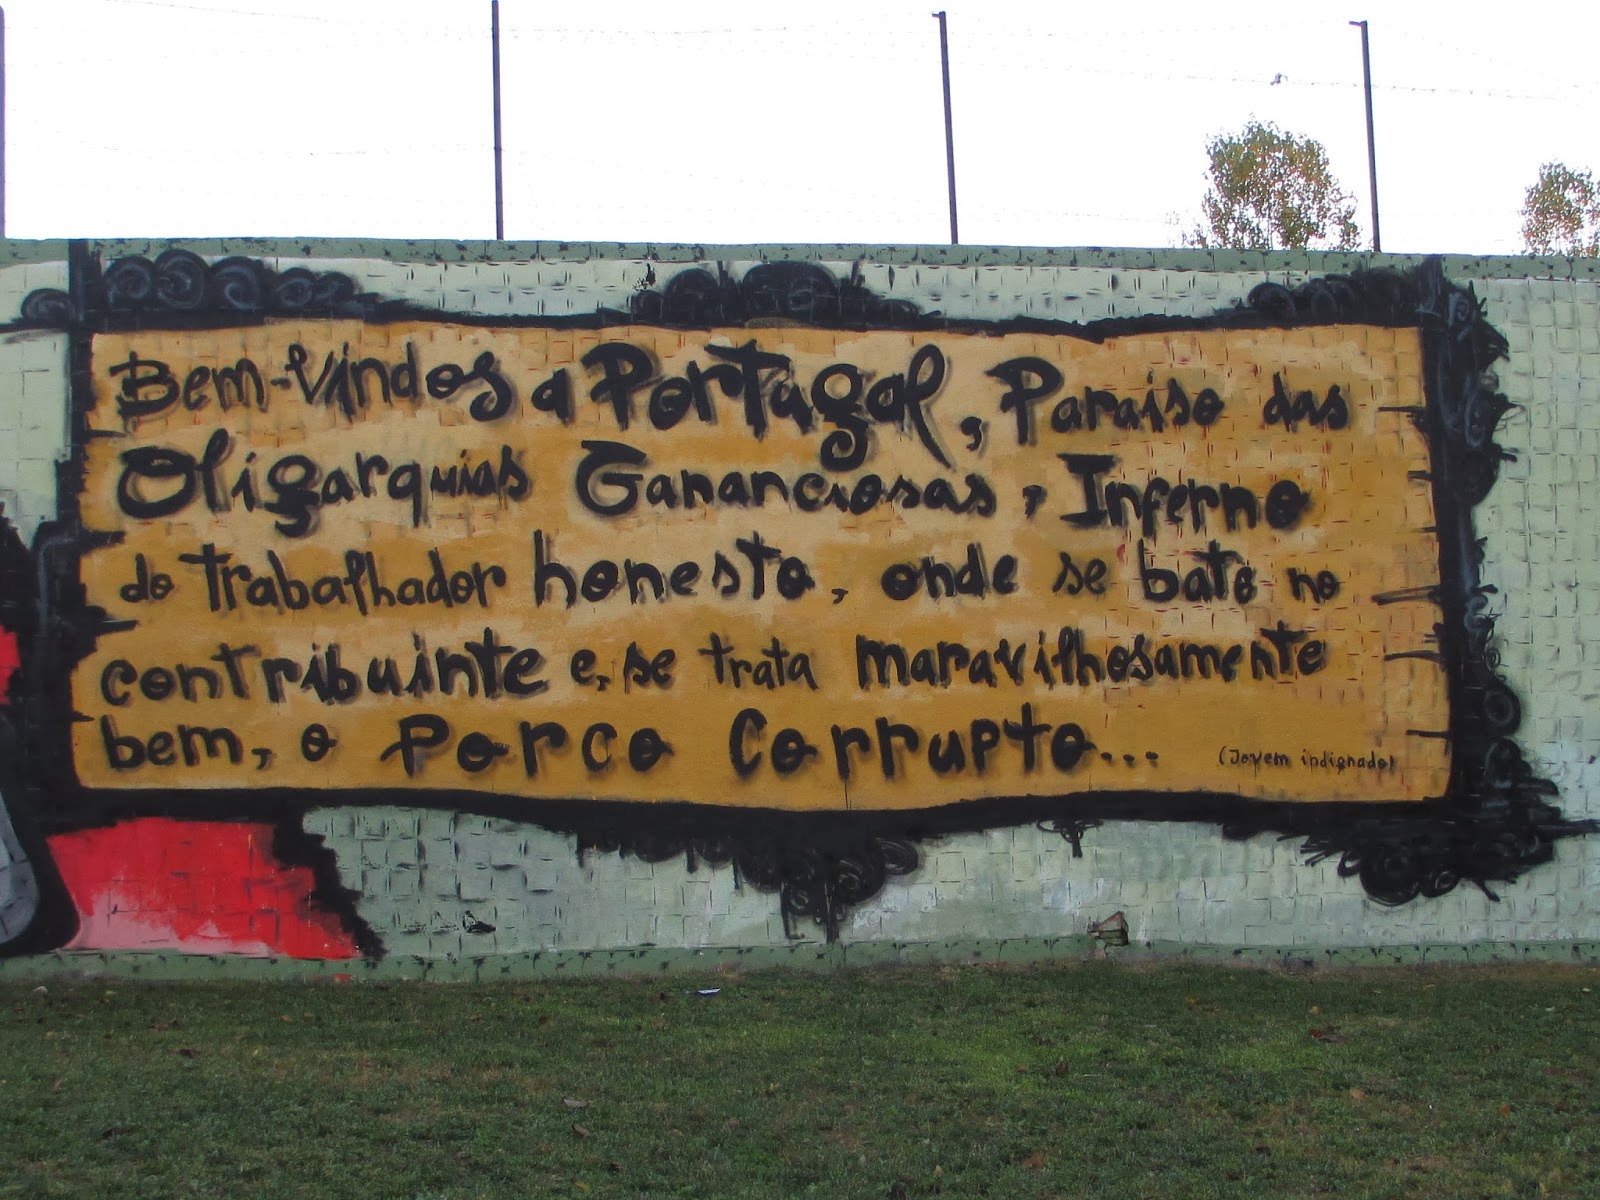 Bem-vindos a Portugal, Paraiso das
Oligarquias Gananciosas, Inferno
do trabalhador honesto, onde se bate no
contribuinte e, se trata maravilhosamente
bem, o Porco Corrupto...
(Jovem indignado)